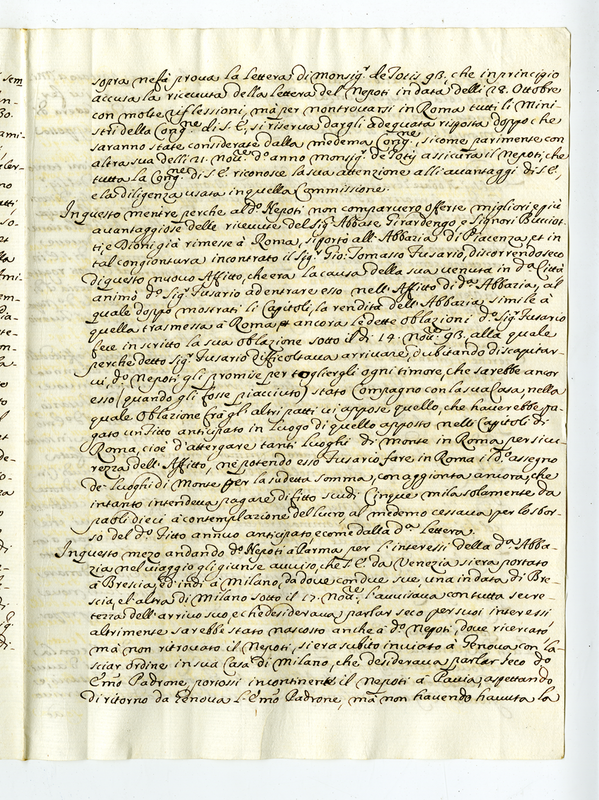 sopra ne fà prova la lettera di monsig.r de Totis 93, che in principio
accusa la ricevuta della lettera del Nepoti in data delli 28. Ottobre
con molte riflessioni, mà per non trovarsi in Roma tutti li Mini-
stri della Cong.ne di S.E., si riserva dargli adeguata risposta doppo che
saranno state considerate dalla medema Cong.ne, si come parimente con
altra sua delli 21. Nov.re d.o anno monsig.r de Totis assicura il Nepoti, che
tutta la Cong.ne di S.E. riconosce la sua attenzione alli avantaggi di S.E.,
e la diligenza usata in quella Commissione.
In questo mentre perche al d.o Nepoti non comparvero offerte migliori e più
avantaggiose delle ricevute del Sig.r Abbate Girardengo, e Signori
ti, e Dioni già rimesse à Roma, si portò all'Abbazia di Piacenza, et in
tal congiontura incontrato il Sig.r Gio: Tomasso Fusario, discorrendo seco
di questo nuovo Affitto, che era la causa della sua venuta in d.a Città
animò d.o Sig.r Fusario ad entrare esso nell'Affitto di d.a Abbazia, al
quale doppo mostrati li Capitoli, la rendita dell'Abbazia simile à
quella trasmessa à Roma, et ancora le dette oblazioni d.o Sig.r Fusario
fece in scritto la sua oblazione sotto il dì 14. Nov.re 93. alla quale
perche detto Sig.r Fusario difficoltava arrivare, dubitando discapitar-
vi, d.o Nepoti gli promise per togliergli ogni timore, che sarebbe ancor
esso (quando gli fosse piacciuto) stato Compagno con la sua Casa, nella
quale Oblazione frà gli altri patti vi appose quello, che haverebbe pa-
gato un Fitto anticipato in luogo di quello apposto nelli Capitoli di
Roma, cioè d'attergare tanti Luoghi di monte in Roma per sicu-
rezza dell'Affitto, ne potendo esso Fusario fare in Roma il d.o assegno
de Luoghi di Monte per la sudetta somma, con aggionta ancora, che
intanto intendeva pagare di fitto scudi Cinque mila solamente da
paoli dieci à contemplazione del lucro, al medemo cessava per lo sbor-
so del d.o Fitto annuo anticipato e come dalla d.a lettera.
In questo mezo andando d.o Nepoti à Parma per l'interessi della d.a Abba-
zia nel viaggio gli giunse avviso, che S.E. da Venezia si era portato
à Brescia, ed indi à Milano, da dove con due sue, una in data di Bre-
scia, et altra di Milano sotto il 17. Nov.re l'avvisava con tutta secre-
tezza dell'arrivo suo, e che desiderava parlar seco per suoi interessi
altrimente sarebbe stato nascosto anche à d.o Nepoti, dove ricercato
mà non ritrovato il Nepoti, si era subito inviato à Genova con la-
sciar ordine in sua Casa di Milano, che desiderava parlar seco d.o
E.mo Padrone, portossi incontinenti il Nepoti à Pavia, aspettando
di ritorno da Genova L'E.mo Padrone, mà non havendo havuta la